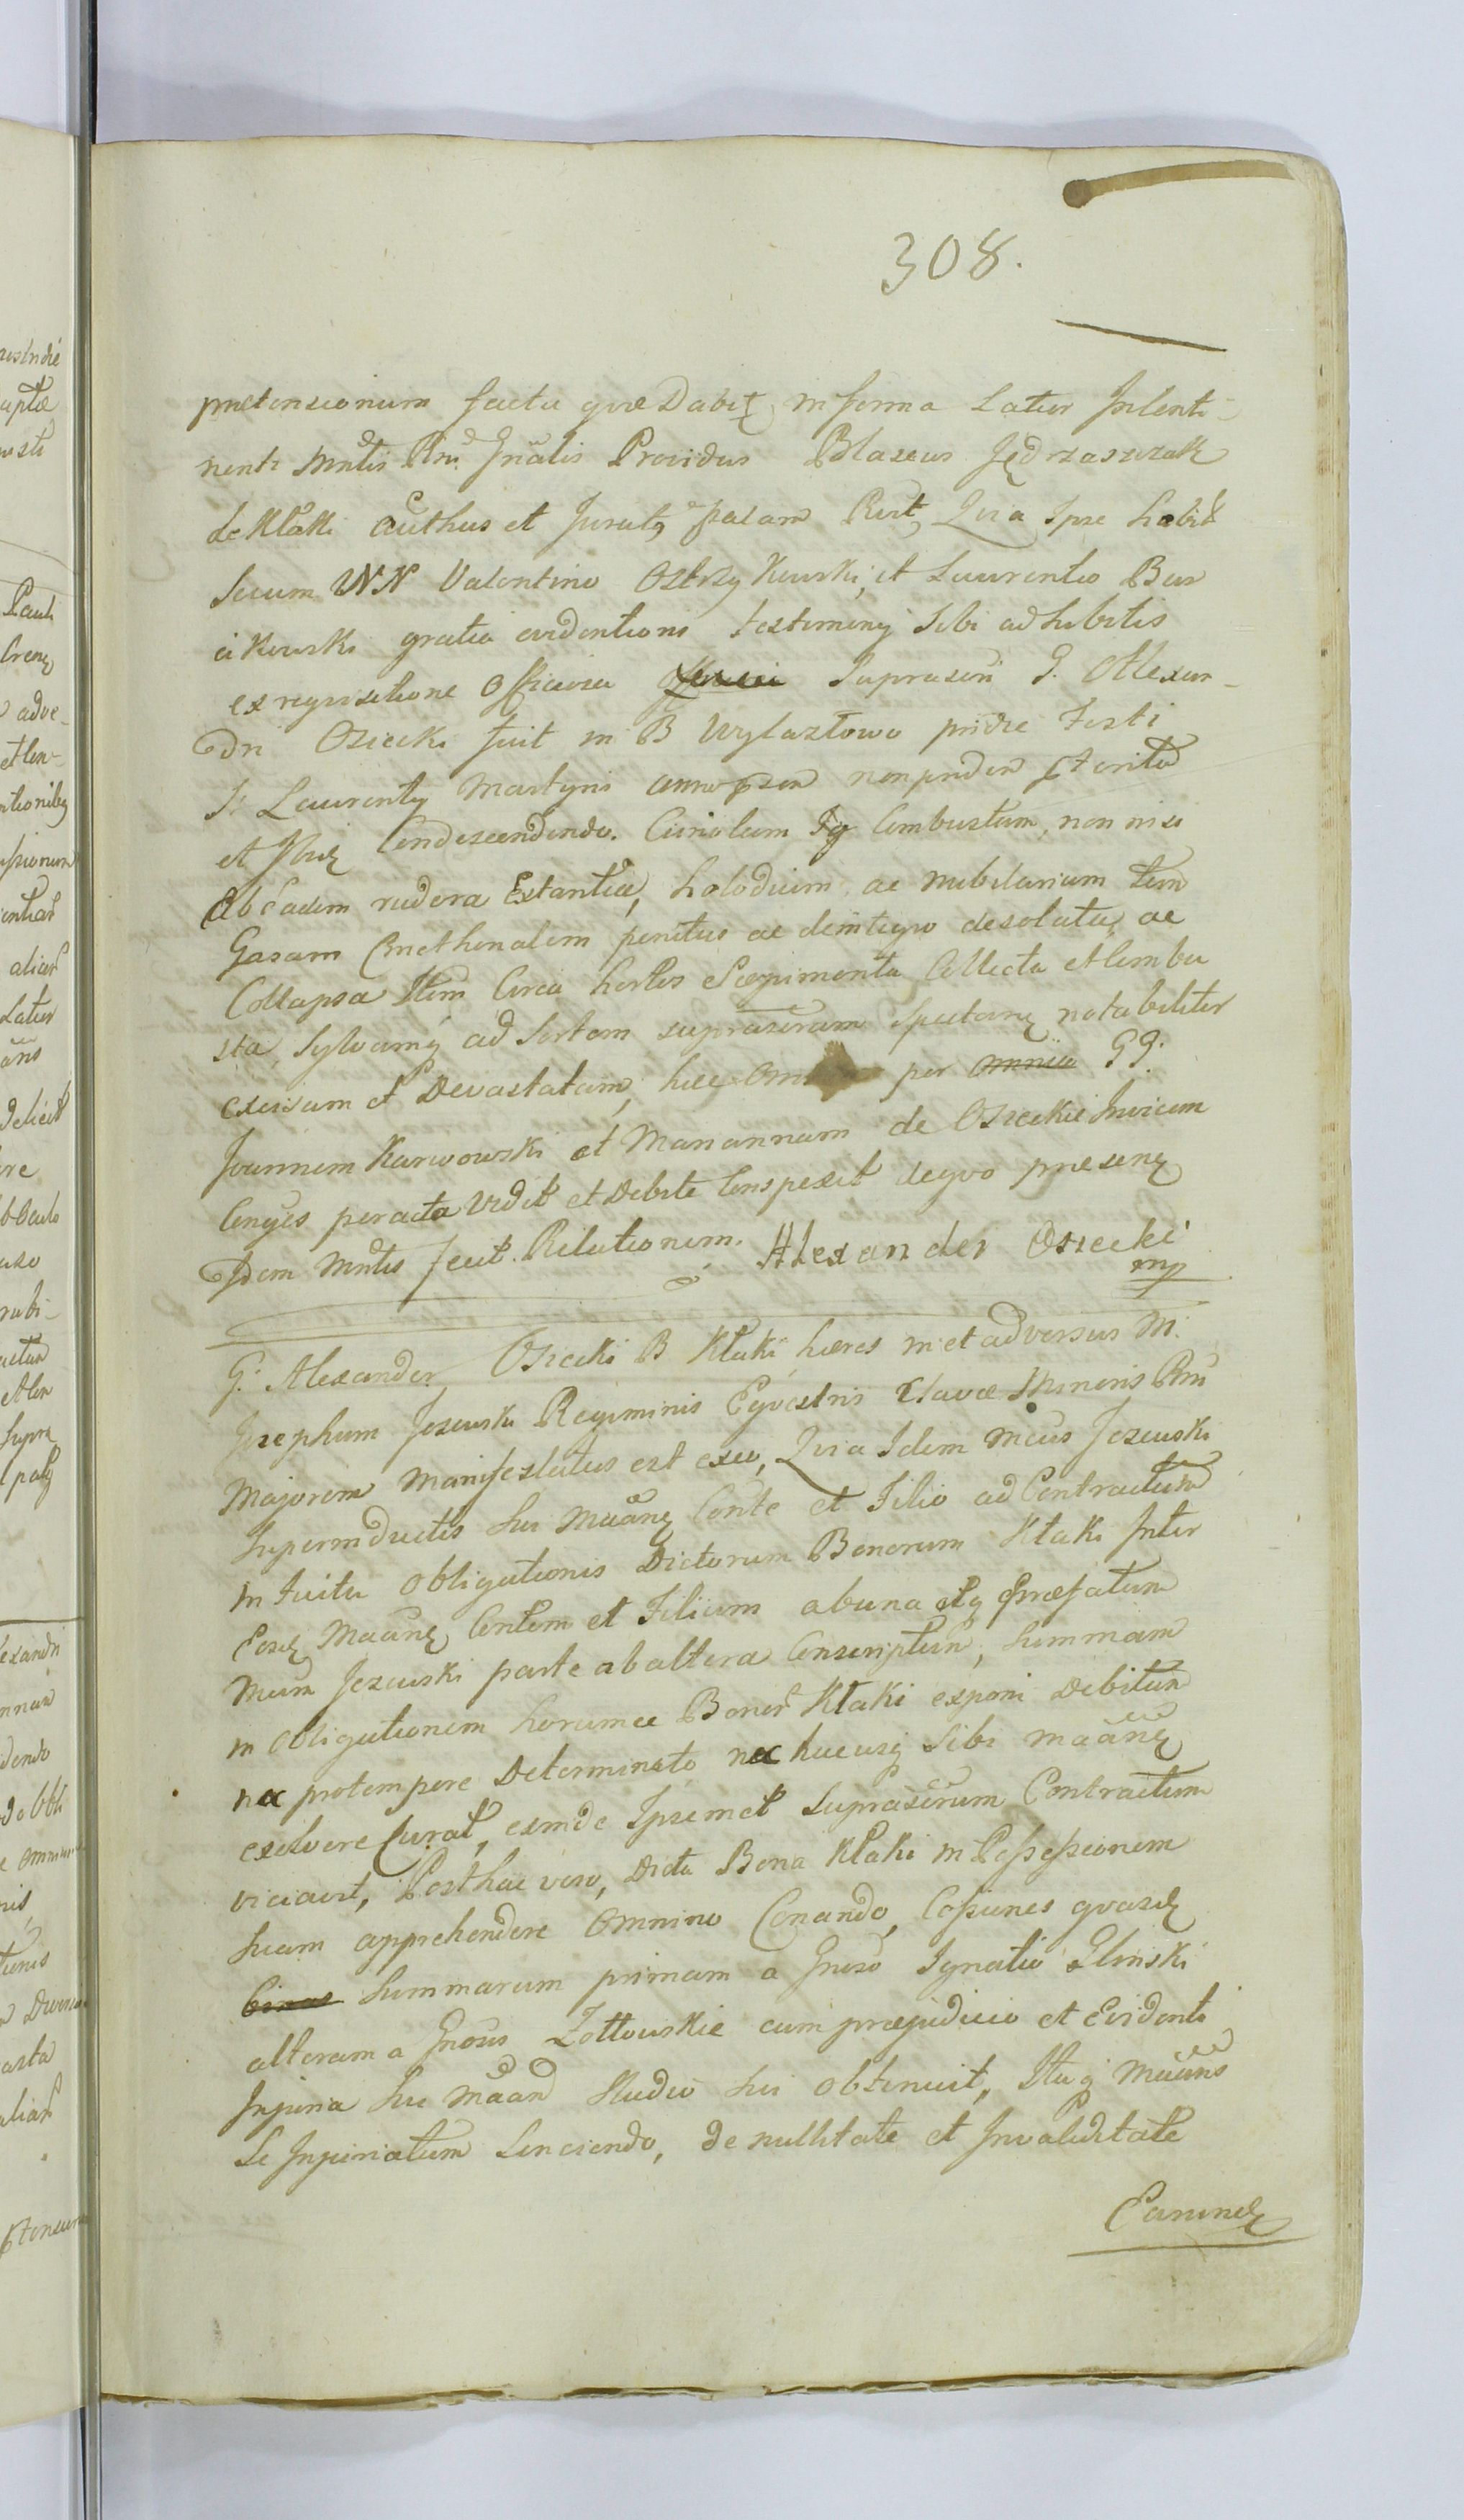 308.
prætensionum facta quæ Dabit in forma Latior Intenti-
nenti Mntis Rni Gnalis Providus Blaseus Jędrzaszczak
de Kłaki authus et Juratq palam Rcit, Quia Ipse habit
secum NN Valentino Ostrzykowski, et Laurentio Bur
cikowski gratia evidentions testimony Sibi adhibitis
ex requisitione officiosa Suprascri G. Alexan-
dri Osiecki fuit in B Wylazłowo pridie Festi
S: Laurenty Martyris anno psen non pridem pterito
et Ibidę Condescendendo. Curiolam Ig Combustam, non nisi
Ab Eadem rudera Extantia, holodium ac nubilarium tum
Gasam Cmethonalem penitus ac deintegro desolata, ac
Collapsa Item Circa hortos Sæpimenta Collecta et Combu
sta, Sylvamq ad Sortem suprascram Spectanę notabiliter
excisam et Devastatam, hæc per GG.
Joannem Karwowski et Mariannam de Osieckie Invicem
Conges peracta Vidit et Debite Conspexit de quo præsenę
Idem Mntis fecit Relationem. Alexander Osiecki
mp
G. Alexander Osiecki B Kłaki hæres in et adversus M.
Josephum Jezewski Regiminis Eqvestris Clavæ Minoris Rni
Majorem Manifestatus est eseo, Quia Idem Mcus Jezewski
Superinductis sui Maanę Conte et Filio ad Contractum
Intuitu Obligationis Dictorum Bonorum Kłaki Inter
Eosdę Maanę Contem et Filium ab una itq Præfatum
Mcum Jezewski parte ab altera Conscriptum, Summam
in Obligationem horumce Bonor Kłaki exponi Debitam
nec pro tempore Determinato nec hucusq Sibi maanę
exolvere Curat, exinde Ipsemet Suprascrum Contractum
viciavit, Posthac vero, Dicta Bona Kłaki in Possessionem
suam apprehendere Omnino Conando, Cessiones quasdę
Summarum primam a Gnoso Ignatio Glinski
alteram a Gnosis Zołtowskie cum præjudicio et Evidenti
Injuria sui Maan studio sui obtinuit, Itaq Maans
Se Injuriatum Senciendo, de nullitate et Invaliditate
Earundę